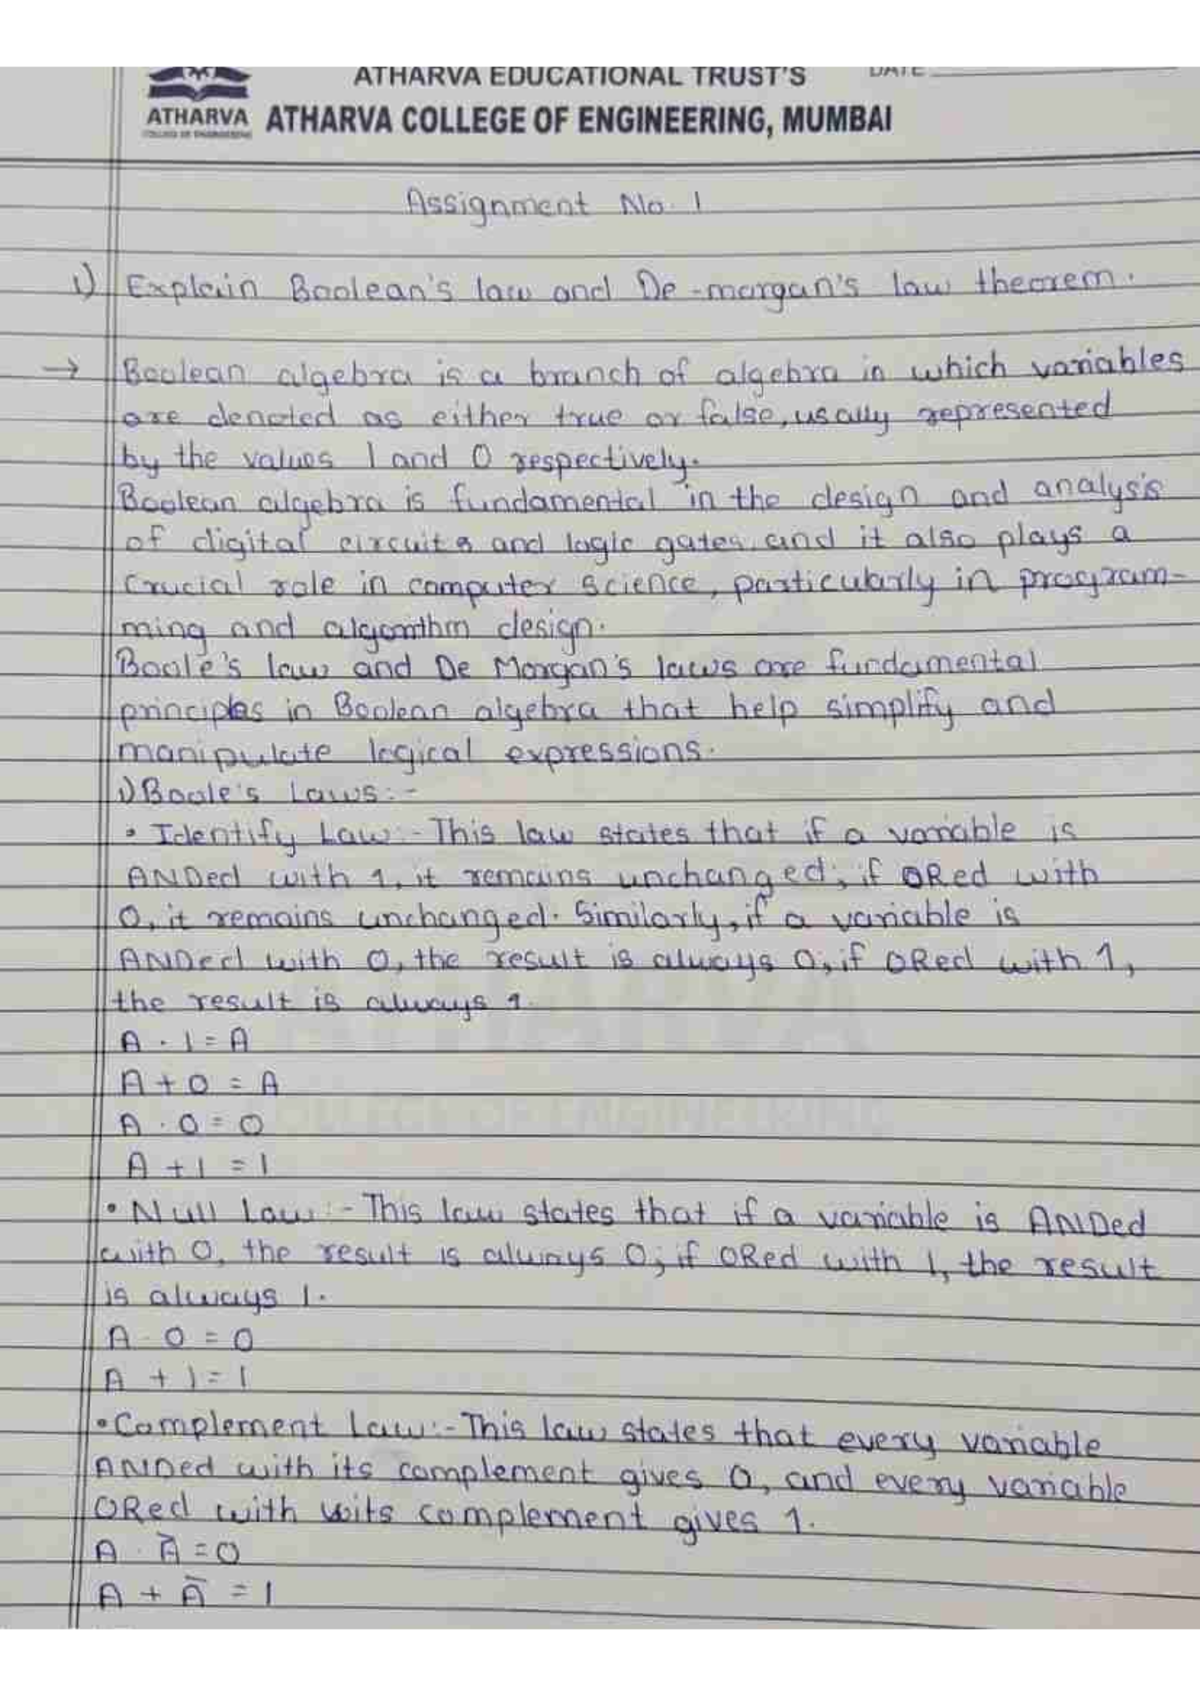 ATHARVA EDUCATIONAL TRUST'S
DATE
ATHARVA
COLLEGE OF ENGINEERING
ATHARVA COLLEGE OF ENGINEERING, MUMBAI
Assignment No. 1
1) Explain Boolean's law and De-morgan's law theorem.
→ Boolean algebra is a branch of algebra in which variables
are denoted as either true or false, usally represented
by the values 1 and 0 respectively.
Boolean algebra is fundamental in the design and analysis
of digital circuits and logic gates, and it also plays a
crucial role in computer science, particularly in program-
ming and algorithm design.
Boole's law and De Morgan's laws are fundamental
principles in Boolean algebra that help simplify and
manipulate logical expressions.
1) Boole's Laws:-
• Identify Law:- This law states that if a variable is
ANDed with 1, it remains unchanged; if ORed with
0, it remains unchanged. Similarly, if a variable is
ANDed with 0, the result is always 0; if ORed with 1,
the result is always 1.
A · 1 = A
A + 0 = A
A · 0 = 0
A + 1 = 1
• Null Law:- This law states that if a variable is ANDed
with 0, the result is always 0; if ORed with 1, the result
is always 1.
A · 0 = 0
A + 1 = 1
• Complement Law:- This law states that every variable
ANDed with its complement gives 0, and every variable
ORed with its complement gives 1.
A · Ā = 0
A + Ā = 1
ATHARVA
COLLEGE OF ENGINEERING